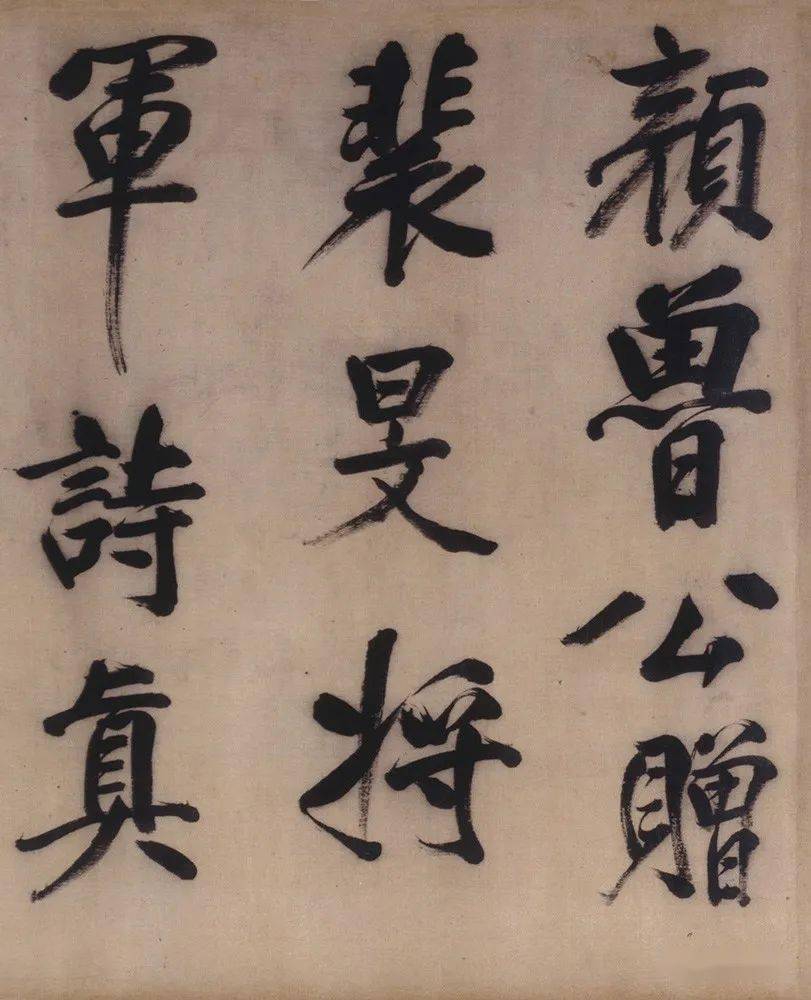 顔魯公贈
裴旻将
軍詩真